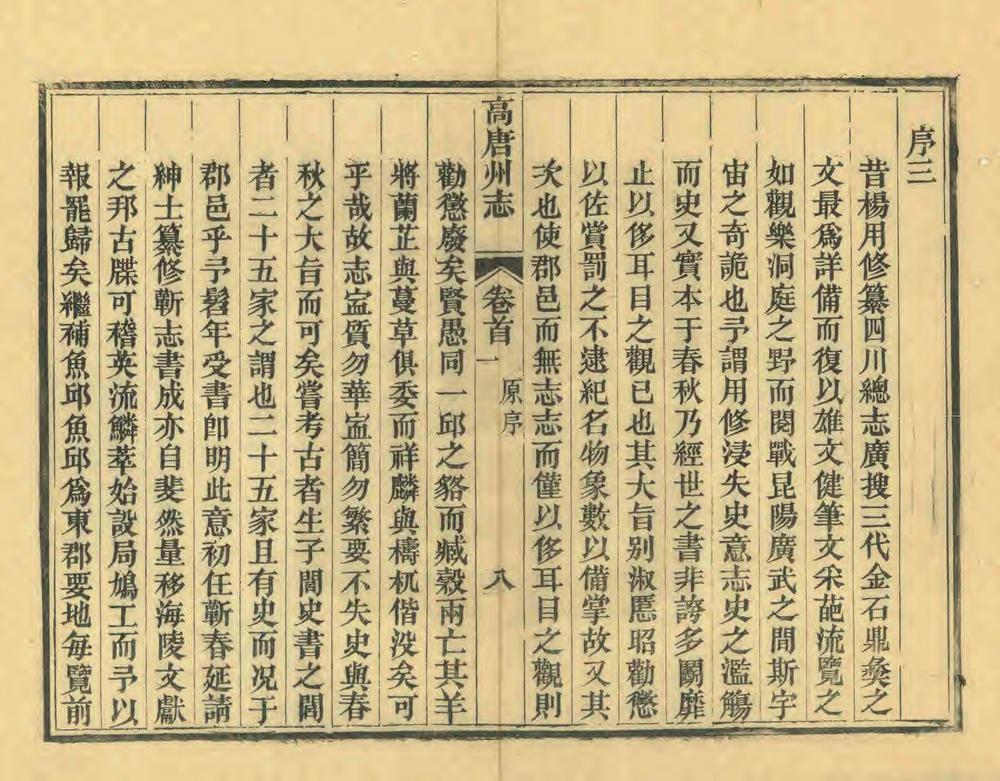 序三
昔楊用修纂四川總志廣搜三代金石鼎彝之
文最為詳備而復以雄文健筆文采葩流覽之
如觀樂洞庭之野而閱戰昆陽廣武之間斯宇
宙之奇詭也予謂用修浸失史意志史之濫觴
而史又實本于春秋乃經世之書非誇多鬬靡
止以侈耳目之觀已也其大旨别淑慝昭勸懲
以佐賞罰之不逮紀名物象數以備掌故又其
次也使郡邑而無志志而僅以侈耳目之觀則
高唐州志 卷首一 原序 八
勸懲廢矣賢愚同一邱之貉而臧榖兩亡其羊
將蘭芷與蔓草俱委而祥麟與檮杌偕没矣可
乎哉故志寍質勿華寍簡勿繁要不失史與春
秋之大旨而可矣嘗考古者生子閭史書之閭
者二十五家之謂也二十五家且有史而况于
郡邑乎予髫年受書卽明此意初任蘄春延請
紳士纂修蘄志書成亦自斐然量移海陵文獻
之邦古牒可稽英流鱗萃始設局鳩工而予以
報罷歸矣繼補魚邱魚邱爲東郡要地每覽前